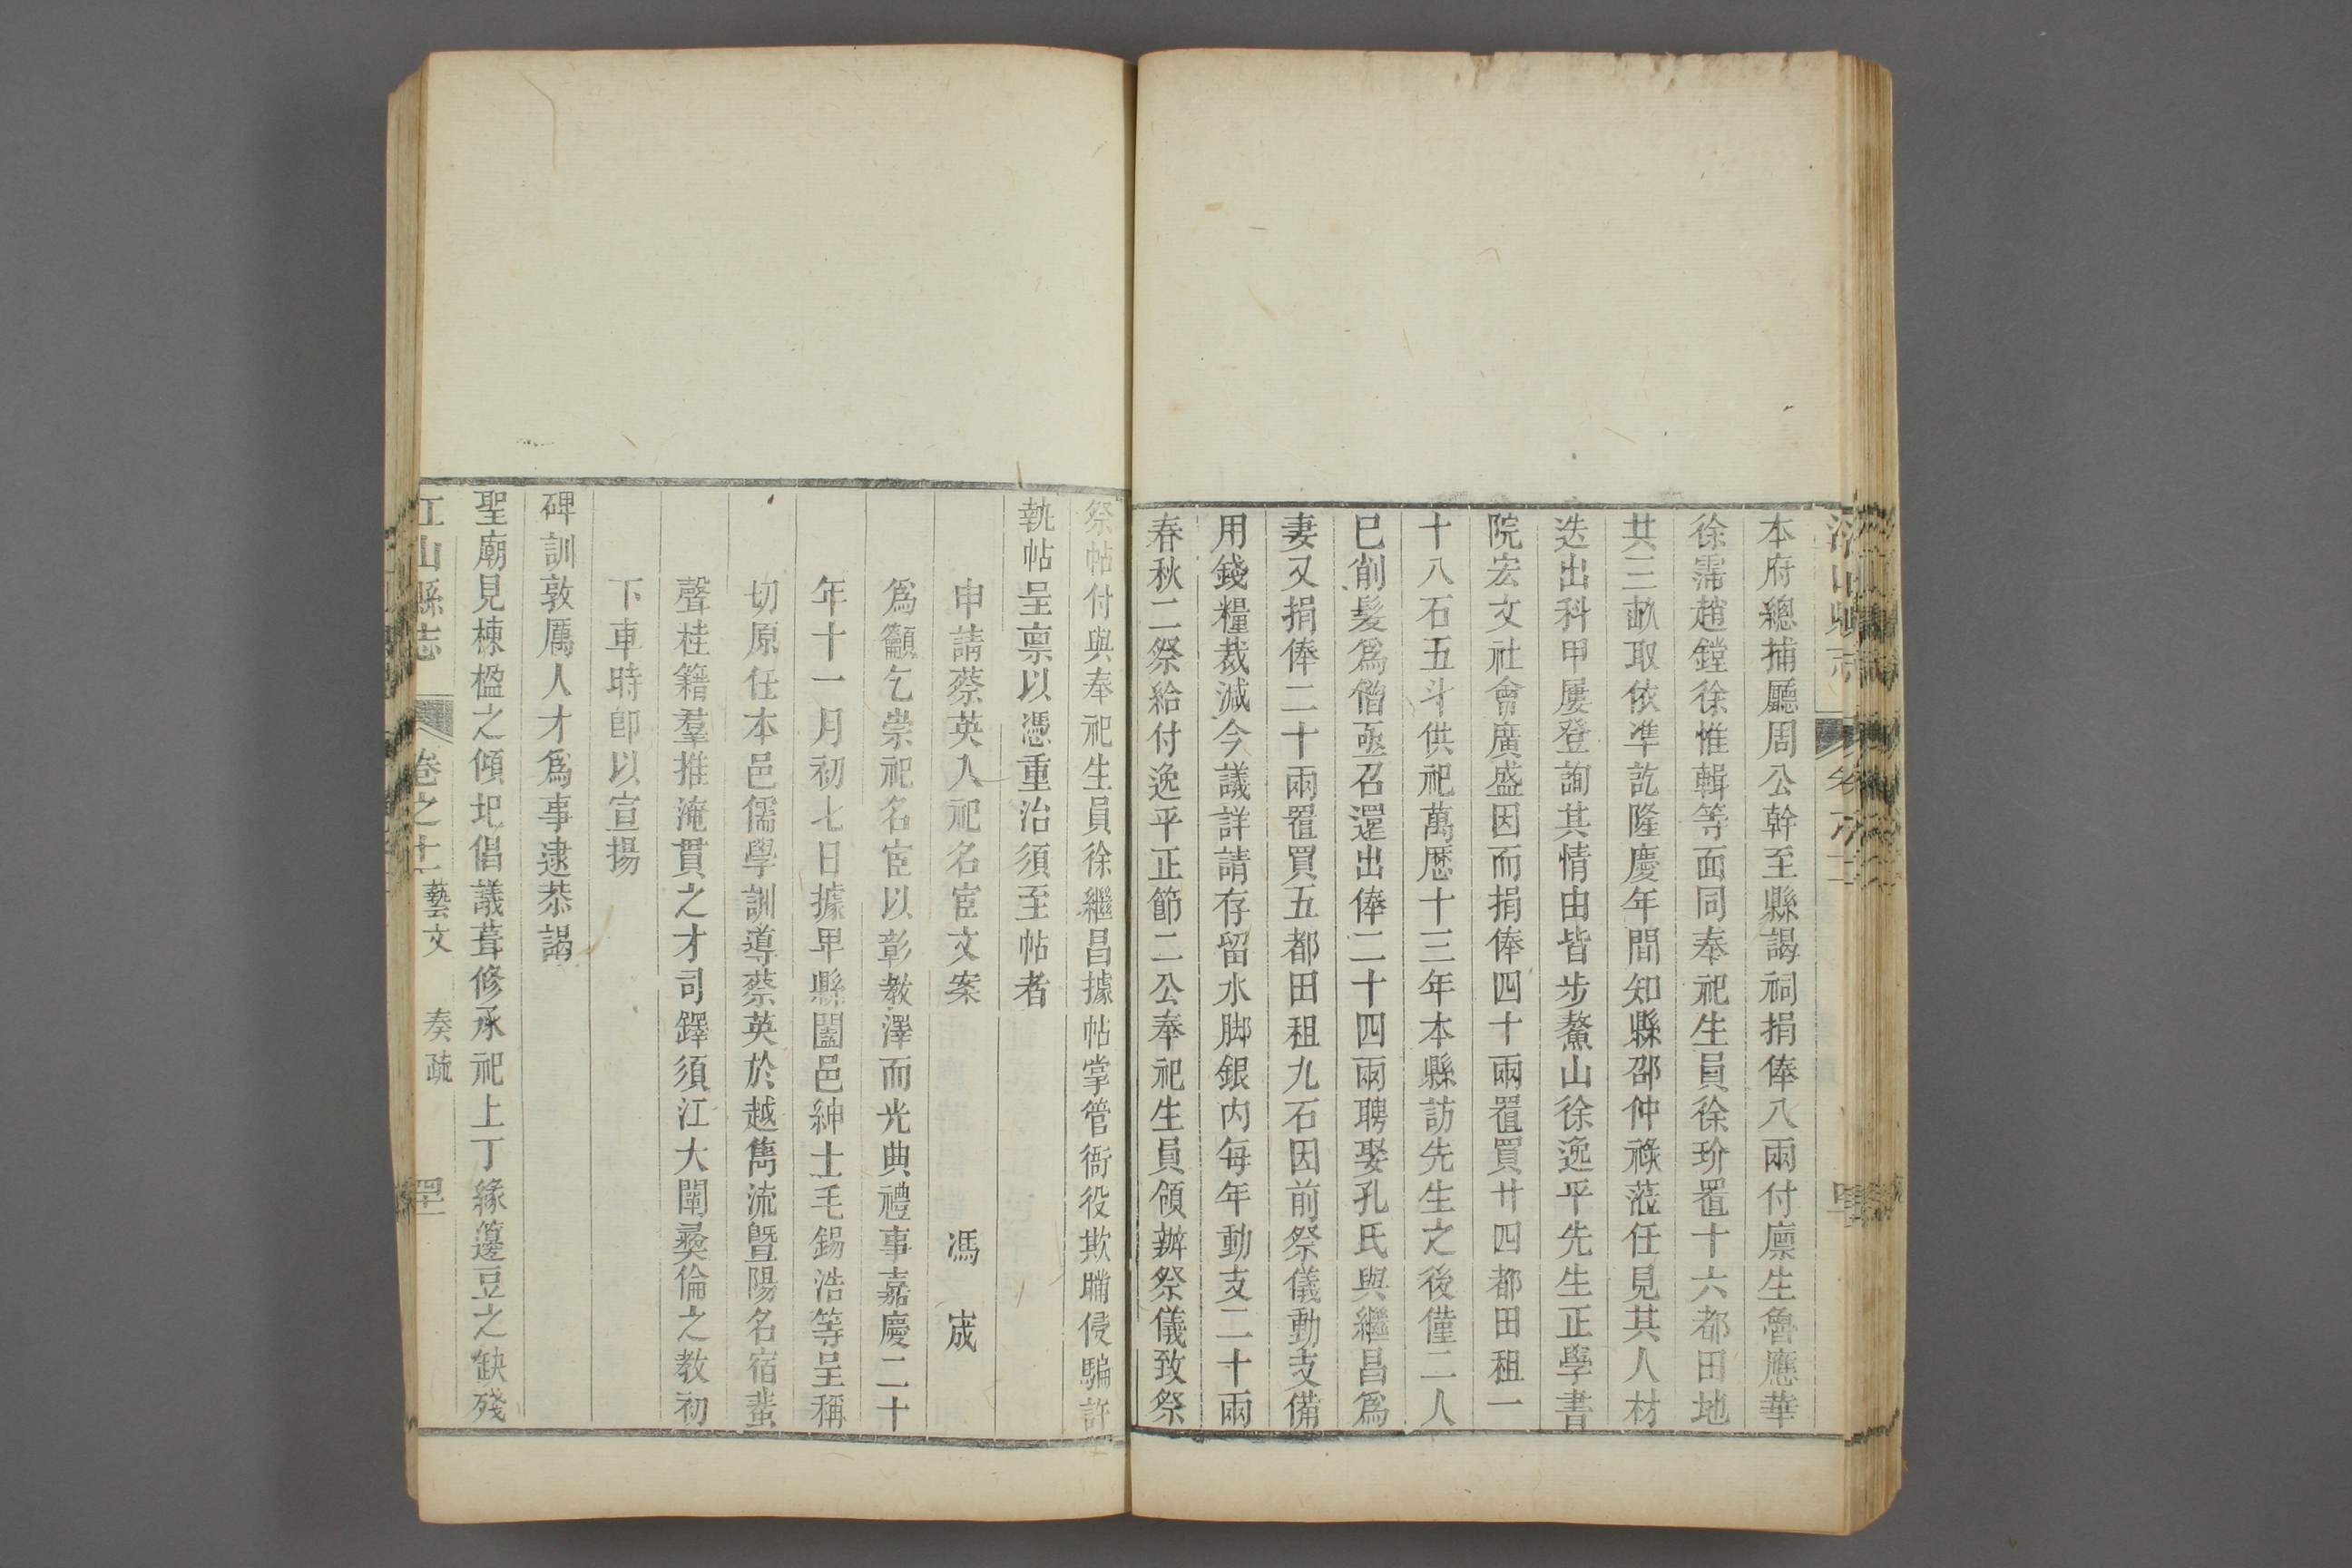 本府總捕廳周公幹至縣謁祠捐俸八兩付廪生魯應華
徐霈趙鏜徐惟輯等面同奉祀生員徐玠置十六都田地
共三畝取依準訖隆慶年間知縣邵仲祿蒞任見其人材
迭出科甲屢登詢其情由皆步鰲山徐逸平先生正學書
院宏文社會廣盛因而捐俸四十兩置買廿四都田租一
十八石五斗供祀萬厯十三年本縣訪先生之後僅二人
已削髮爲僧亟召還出俸二十四兩聘娶孔氏與繼昌爲
妻又捐俸二十兩置買五都田租九石因前祭儀動支備
用錢糧裁減今議詳請存留水脚銀内每年動支二十兩
春秋二祭給付逸平正節二公奉祀生員領辦祭儀致祭
祭帖付與奉祀生員徐繼昌據帖掌管衙役欺瞞侵騙許
執帖呈禀以憑重治須至帖者
申請蔡英入祀名宦文案 馮宬
爲籲乞崇祀名宦以彰教澤而光典禮事嘉慶二十
年十一月初七日據卑縣闔邑紳士毛錫浩等呈稱
切原任本邑儒學訓導蔡英於越雋流暨陽名宿蜚
聲桂籍羣推淹貫之才司鐸須江大闡彝倫之教初
下車時卽以宣揚
碑訓敦厲人才爲事逮恭謁
聖廟見棟楹之傾圯倡議葺修承祀上丁緣籩豆之缺殘
江山縣志 卷之十一 藝文 奏疏